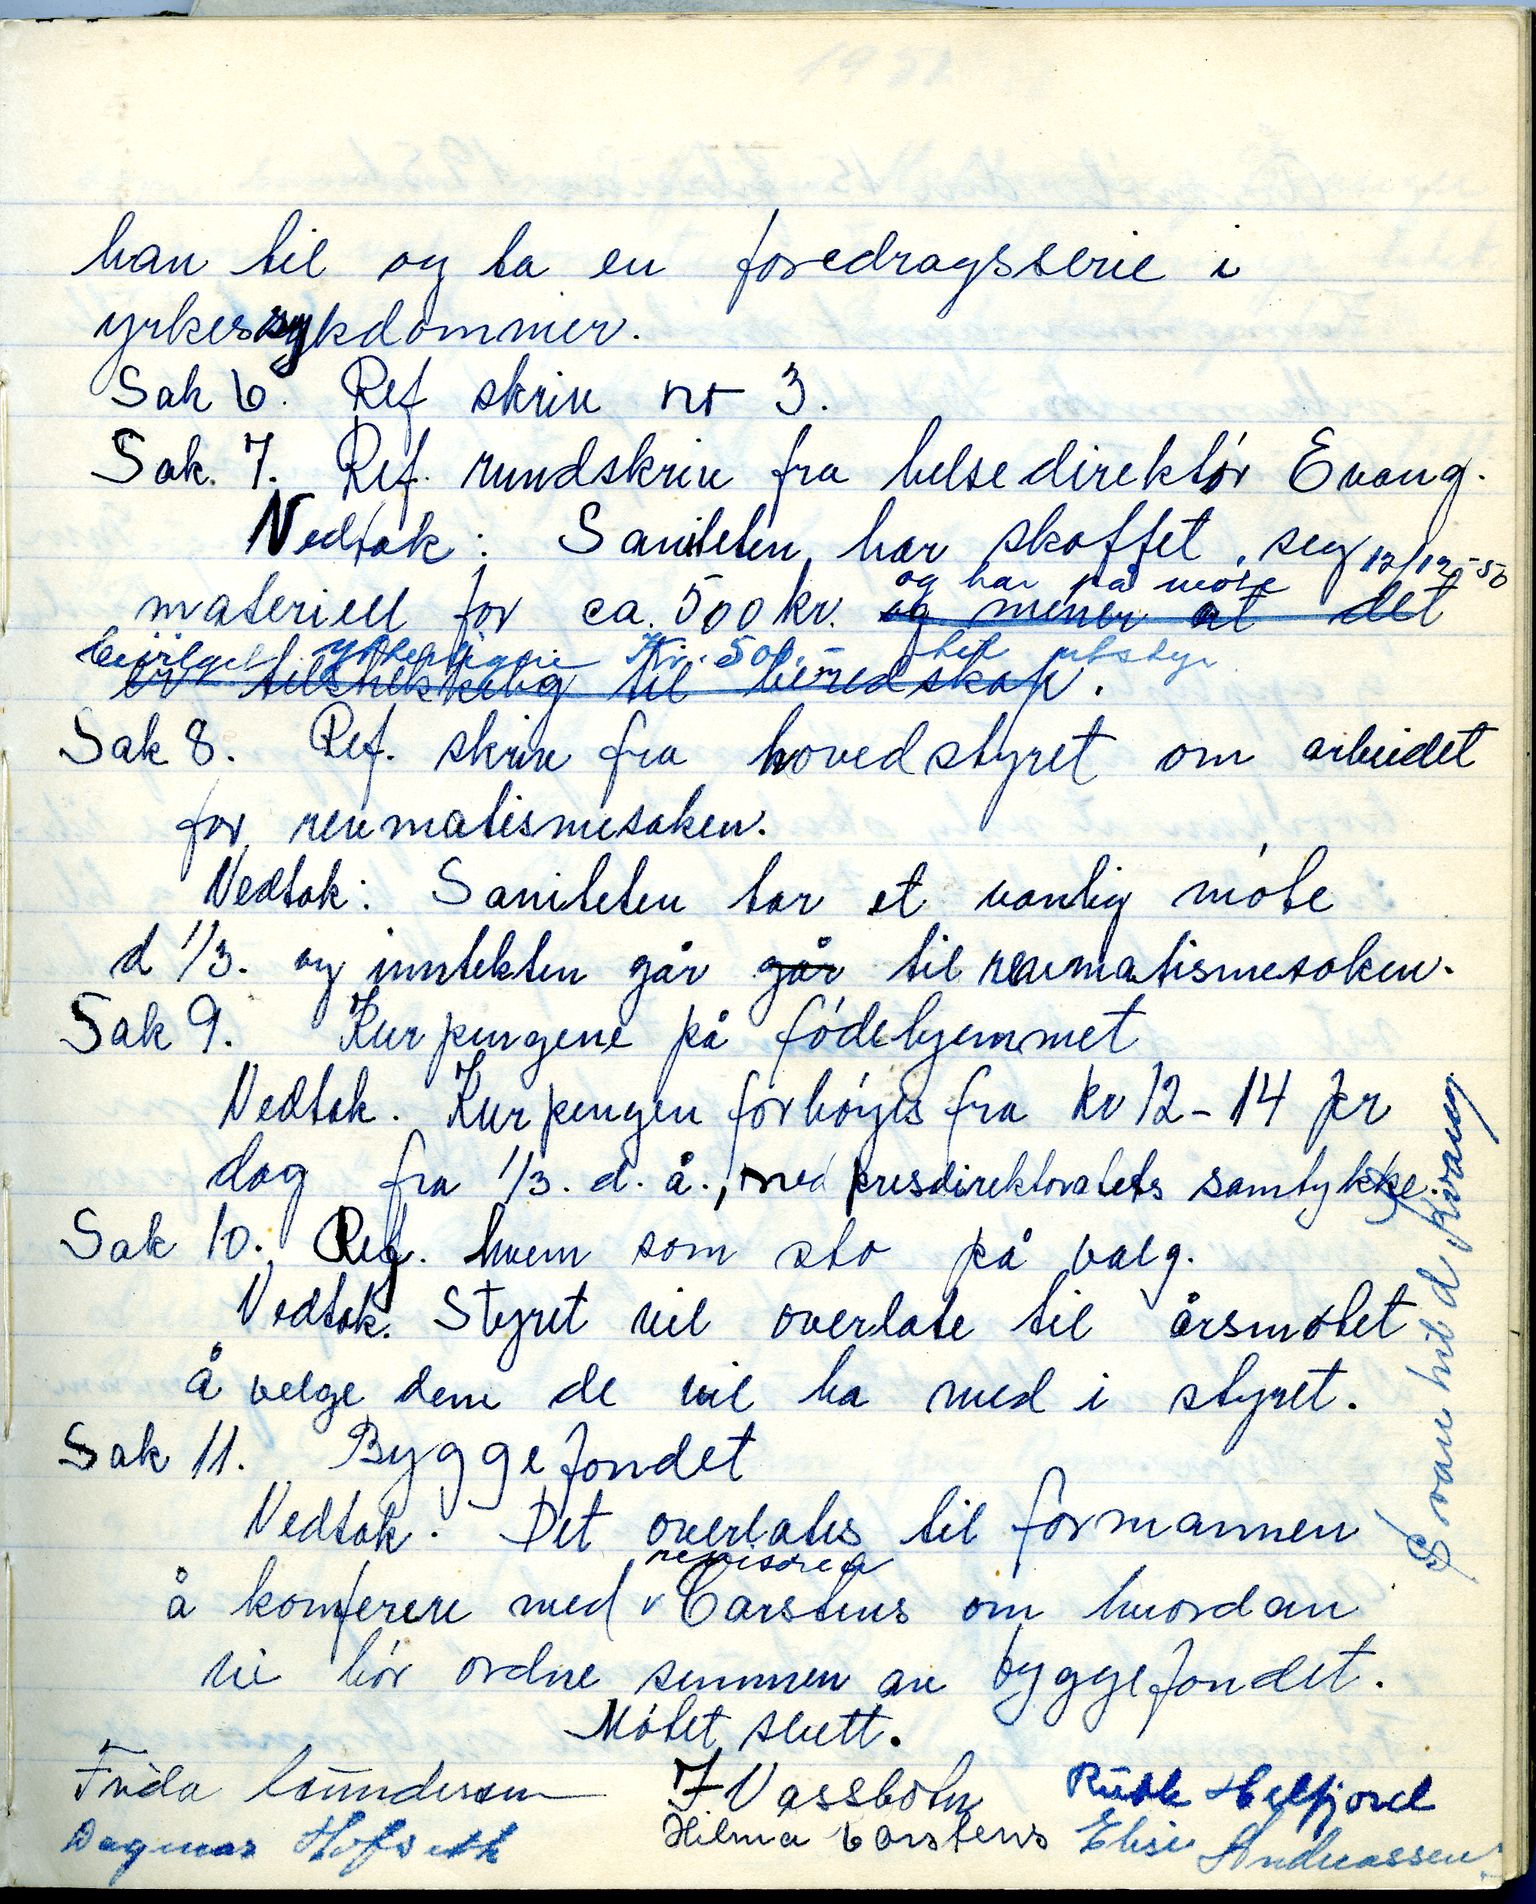 han til og ta en foredragsserie i
yrkessykdommer.
Sak 6. Ref skriv nr 3.
Sak. 7. Ref. rundskriv fra helsedirektør Evang.
Vedtak: Saniteten har skaffet seg
og har på møte 12/12-50
materiell for ca. 500 kr. og mener at det
bevilget ytterligere Kr. 500.- til utstyr
er tilstrekkelig til beredskap.
Sak 8. Ref. skriv fra hovedstyret om arbeidet
for revmatismesaken.
Vedtak: Saniteten tar et vanlig møte
d 1/3. og inntekten går går til revmatismesaken.
Sak 9. Kurpengene på fødehjemmet
Vedtak. Kurpengen forhøyes fra kr 12-14 pr
dag fra 1/3. d. å., med prisdirektoratets samtykke.
Sak 10. Ref. hvem som sto på valg.
Vedtak. Styret vil overlate til årsmøtet
å velge dem de vil ha med i styret.
Sak 11. Byggefondet
Vedtak. Det overlates til formannen
revisor
å konferere med v Carstens om hvordan
vi bør ordne summen av byggefondet.
Møtet slutt.
Frida Gundersen J Vassbotn Ruth Helfjord
Dagmar Hofseth Hilma Carstens Elise Andreassen
Svanhild Kvang